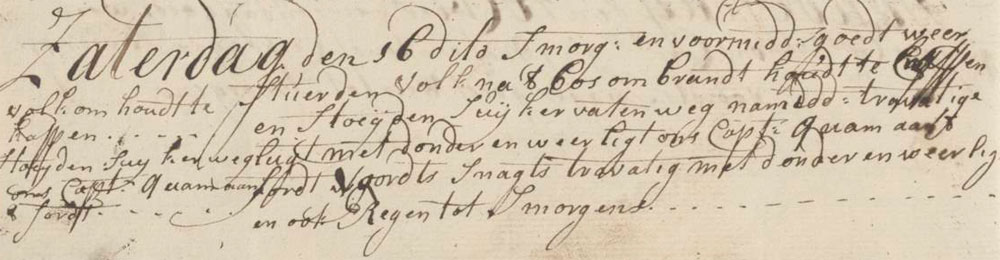 Zaterdag den 16 dito Smorg: en voormidd: goedt weer
stuerden volk na't bos om brandt houdt te kappen
en stoeijden Suijker vaten weg namidd: travatige
lugt met donder en weerligt ons Capt: quam aan't
fordt voordts Snagts travatig met donder en weerlig
en ook Regen tot Smorgens
volk om houdt te
kappen
stoeijden Suijker weg
ons Capt: quam aan
't fordt